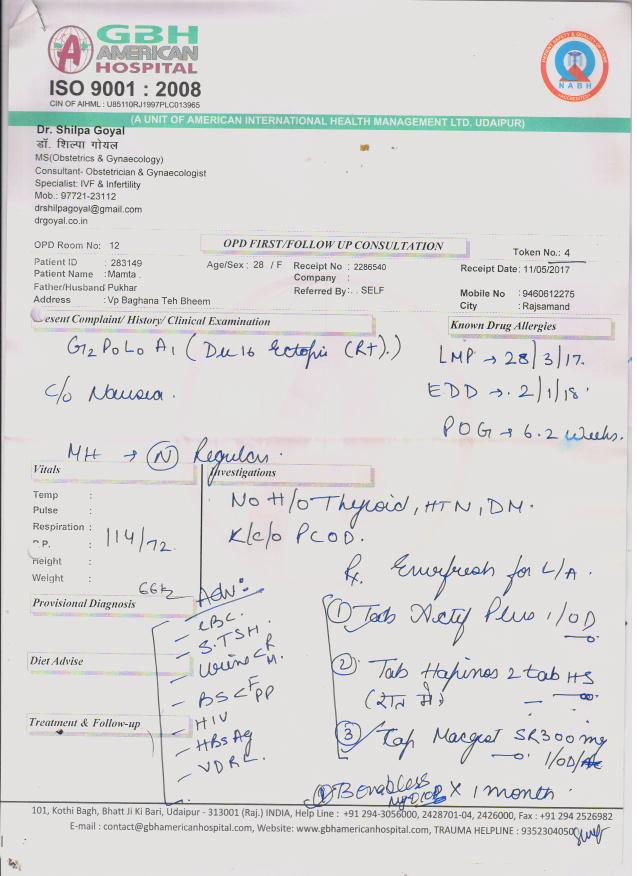 GBH
AMERICAN
HOSPITAL
ISO 9001 : 2008
CIN OF AIHML : U85110RJ1997PLC013965
NABH
(A UNIT OF AMERICAN INTERNATIONAL HEALTH MANAGEMENT LTD. UDAIPUR)
Dr. Shilpa Goyal
डॉ. शिल्पा गोयल
MS(Obstetrics & Gynaecology)
Consultant- Obstetrician & Gynaecologist
Specialist: IVF & Infertility
Mob.: 97721-23112
drshilpagoyal@gmail.com
drgoyal.co.in
OPD Room No: 12
OPD FIRST/FOLLOW UP CONSULTATION
Token No.: 4
Patient ID : 283149
Age/Sex : 28 / F
Receipt No : 2286540
Receipt Date: 11/05/2017
Patient Name : Mamta .
Company :
Father/Husband Pukhar
Referred By : . SELF
Mobile No : 9460612275
Address : Vp Baghana Teh Bheem
City : Rajsamand
esent Complaint/ History/ Clinical Examination
Known Drug Allergies
G2 P0 L0 A1 ( Dec 16 Ectopic (Rt).)
LMP → 28/3/17.
c/o Nausea.
EDD → 2/1/18.
POG → 6.2 weeks.
MH → (N) Regular.
Vitals
Investigations
Temp :
Pulse :
Respiration :
B.P. : 114/72
Height :
Weight :
No H/o Thyroid, HTN, DM.
K/c/o PCOD.
Rx for L/A.
66
Adv:-
Provisional Diagnosis
- CBC.
- S.TSH.
- Urine C R M.
- BS F PP
- HIV
- HBsAg
- VDRL
Diet Advise
Treatment & Follow-up
① Tab Plus 1/OD
② Tab 2 tab HS
(रात में)
③ Cap Macgest SR 300mg
1/OD
x 1 month.
101, Kothi Bagh, Bhatt Ji Ki Bari, Udaipur - 313001 (Raj.) INDIA, Help Line : +91 294-3056000, 2428701-04, 2426000, Fax : +91 294 2526982
E-mail : contact@gbhamericanhospital.com, Website: www.gbhamericanhospital.com, TRAUMA HELPLINE : 9352304050